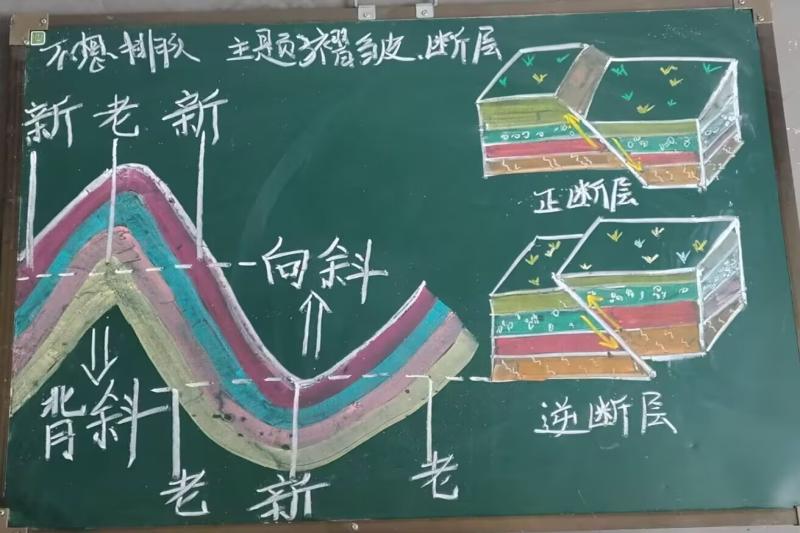 不想排队 主题 褶皱、断层
新 老 新
正断层
向斜
背斜
逆断层
老 新 老